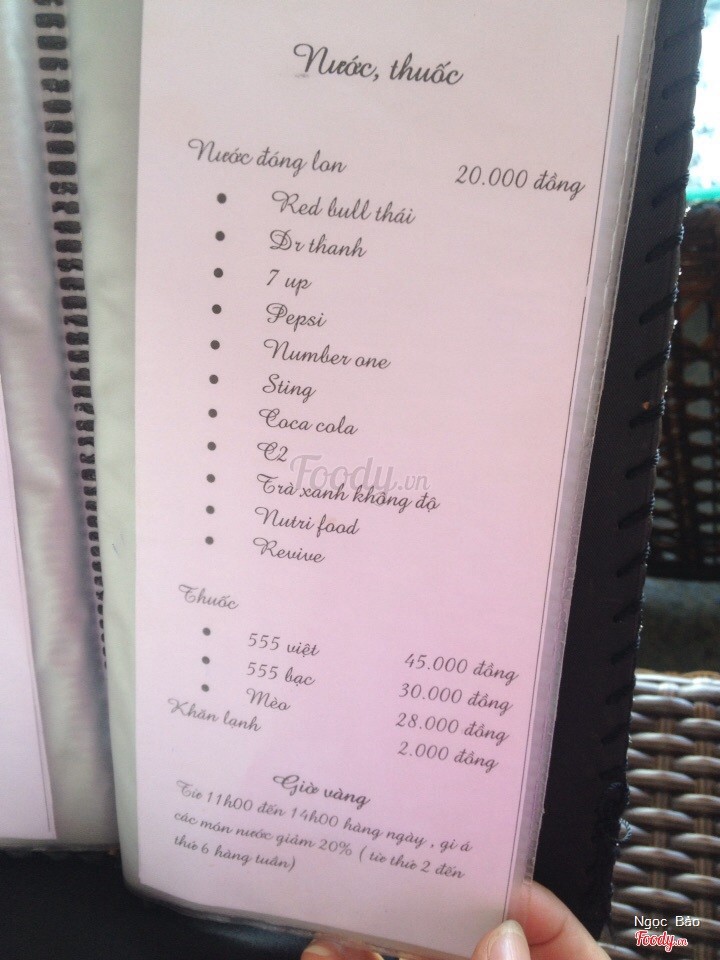 Nước, thuốc
Nước đóng lon 20.000 đồng
• Red bull thái
• Dr thanh
• 7 up
• Pepsi
• Number one
• Sting
• Coca cola
• C2
• Trà xanh không độ
• Nutri food
• Revive
Thuốc
• 555 việt 45.000 đồng
• 555 bạc 30.000 đồng
• Mèo 28.000 đồng
Khăn lạnh 2.000 đồng
Giờ vàng
Từ 11h00 đến 14h00 hàng ngày , gi á
các món nước giảm 20% ( từ thứ 2 đến
thứ 6 hàng tuần)
Foody.vn
Ngọc Bảo
Foody.vn